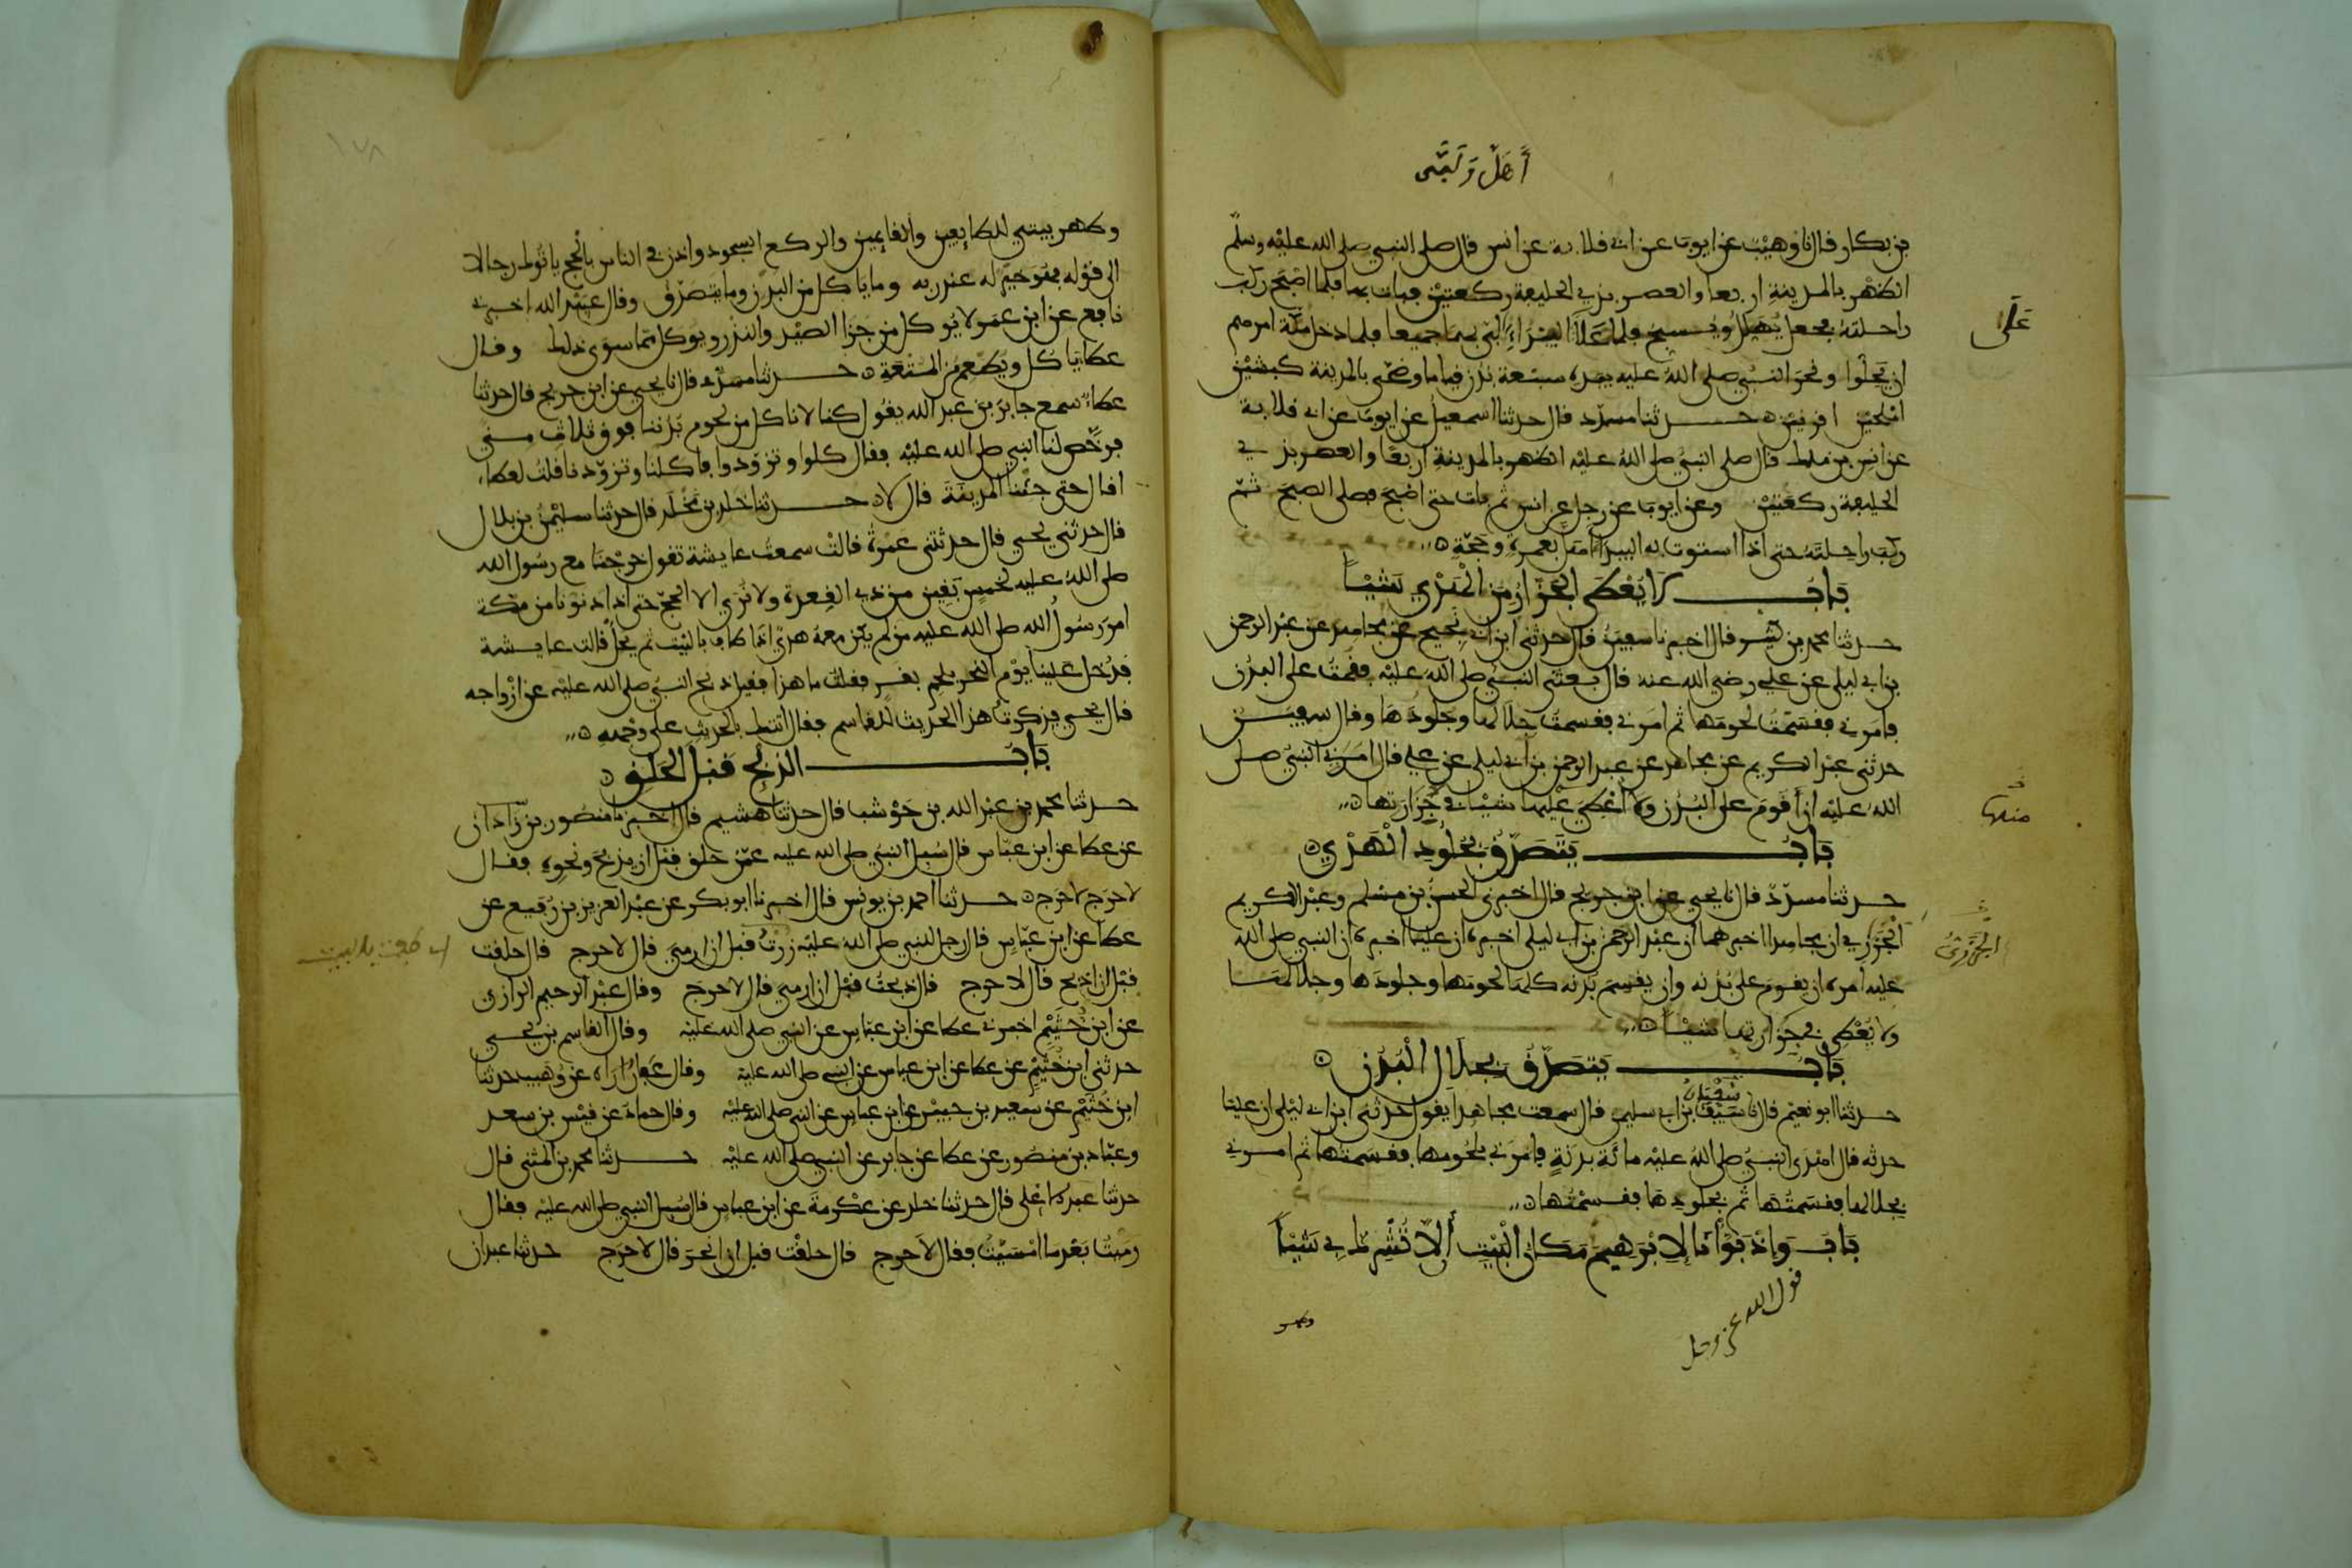 أَهَلَّ وَلَبَّى
بن بكار قال نا وهيب عن ايوب عن ابي قلابة عن انس قال صلى النبي صلى الله عليه وسلم
الظهر بالمدينة اربعا والعصر بذي الحليفة ركعتين فبات بها فلما اصبح ركب
راحلته فجعل يهلل ويسبح فلما علا البيداء لبى بهما جميعا فلما دخل مكة امرهم
ان يحلوا ونحر النبي صلى الله عليه بيده سبعة بدن قياما وضحى بالمدينة كبشين
املحين اقرنين حدثنا مسدد قال حدثنا اسمعيل عن ايوب عن ابي قلابة
عن انس بن ملك قال صلى النبي صلى الله عليه الظهر بالمدينة اربعا والعصر بذي
الحليفة ركعتين وعن ايوب عن رجل عن انس ثم بات حتى اصبح فصلى الصبح ثم
ركب راحلته حتى اذا استوت به البيداء اهل بعمرة وحجة
باب لا يعطى الجزار من الهدي شيئا
حدثنا محمد بن كثير قال اخبرنا سفين قال حدثني ابن ابي نجيح عن مجاهد عن عبد الرحمن
بن ابي ليلى عن علي رضي الله عنه قال بعثني النبي صلى الله عليه فقمت على البدن
فامرني فقسمت لحومها ثم امرني فقسمت جلالها وجلودها وقال سفين
حدثني عبد الكريم عن مجاهد عن عبد الرحمن بن ابي ليلى عن علي قال امرني النبي صلى
الله عليه ان أقوم على البدن ولا أعطي عليها شيئا في جزارتها
باب يتصدق بجلود الهدي
حدثنا مسدد قال نا يحيى عن ابن جريج قال اخبرني الحسن بن مسلم وعبد الكريم
الجزري ان مجاهدا اخبرهما ان عبد الرحمن بن ابي ليلى اخبره ان عليا اخبره ان النبي صلى الله
عليه امره ان يقوم على بدنه وان يقسم بدنه كلها لحومها وجلودها وجلالها
ولا يعطي في جزارتها شيئا
باب يتصدق بجلال البدن
حدثنا ابو نعيم قال نا سيف بن ابي سليمن قال سمعت مجاهدا يقول حدثني ابن ابي ليلى ان عليا
حدثه قال اهدى النبي صلى الله عليه مائة بدنة فامرني بلحومها فقسمتها ثم امرني
بجلالها فقسمتها ثم بجلودها فقسمتها
باب وإذ بوأنا لإبرهيم مكان البيت ألا تشرك بي شيئا
قول الله عز وجل
وطهر
على
منها
الجزري
١٧٨
وطهر بيتي للطايفين والقايمين والركع السجود واذن في الناس بالحج ياتوك رجالا
الى قوله فهو خير له عند ربه وما ياكل من البدن وما يتصدق وقال عبيد الله اخبرني
نافع عن ابن عمر لا يوكل من جزا الصيد والنذر ويوكل مما سوى ذلك وقال
عطا ياكل ويطعم من المتعة حدثنا مسدد قال نا يحيى عن ابن جريج قال حدثنا
عطاء سمع جابر بن عبد الله يقول كنا لا ناكل من لحوم بدننا فوق ثلاث منى
فرخص لنا النبي صلى الله عليه فقال كلوا وتزودوا فاكلنا وتزودنا قلت لعطاء
اقال حتى جئنا المدينة قال لا حدثنا خلد بن مخلد قال حدثنا سليمن بن بلال
قال حدثني يحيى قال حدثتني عمرة قالت سمعت عايشة تقول خرجنا مع رسول الله
صلى الله عليه لخمس بقين من ذي القعدة ولا نرى الا الحج حتى اذا دنونا من مكة
امر رسول الله صلى الله عليه من لم يكن معه هدي اذا طاف بالبيت ثم يحل قالت عايشة
فدخل علينا يوم النحر بلحم بقر فقلت ما هذا فقيل ذبح النبي صلى الله عليه عن ازواجه
قال يحيى فذكرت هذا الحديث للقاسم فقال اتتك بالحديث على وجهه
باب الذبح قبل الحلق
حدثنا محمد بن عبد الله بن حوشب قال حدثنا هشيم قال اخبرنا منصور بن زاذان
عن عطا عن ابن عباس قال سئل النبي صلى الله عليه عمن حلق قبل ان يذبح ونحوه فقال
لا حرج لا حرج حدثنا احمد بن يونس قال اخبرنا ابو بكر عن عبد العزيز بن رفيع عن
عطا عن ابن عباس قال رجل للنبي صلى الله عليه زرت قبل ان ارمي قال لا حرج قال حلقت
اي طفت بالبيت
قبل ان اذبح قال لا حرج قال ذبحت قبل ان ارمي قال لا حرج وقال عبد الرحيم الرازي
عن ابن خثيم اخبرني عطا عن ابن عباس عن النبي صلى الله عليه وقال القاسم بن يحيى
حدثني ابن خثيم عن عطا عن ابن عباس عن النبي صلى الله عليه وقال عفان اراه عن وهيب حدثنا
ابن خثيم عن سعيد بن جبير عن ابن عباس عن النبي صلى الله عليه وقال حماد عن قيس بن سعد
وعباد بن منصور عن عطا عن جابر عن النبي صلى الله عليه حدثنا محمد بن المثنى قال
حدثنا عبد الاعلى قال حدثنا خلد عن عكرمة عن ابن عباس قال سئل النبي صلى الله عليه فقال
رميت بعد ما امسيت فقال لا حرج قال حلقت قبل ان انحر قال لا حرج حدثنا عبدان